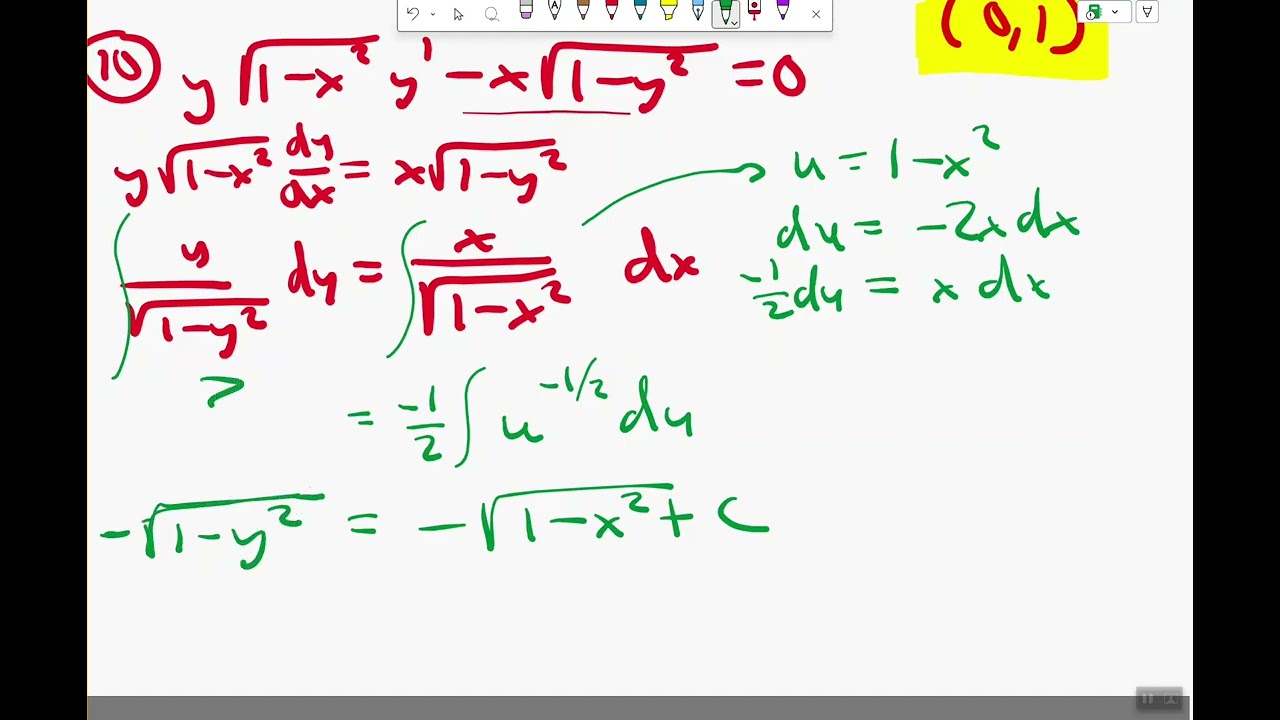 (0,1)
10 y√(1-x²) y' - x√(1-y²) = 0
y√(1-x²) dy/dx = x√(1-y²)
∫ y/√(1-y²) dy = ∫ x/√(1-x²) dx
u = 1-x²
du = -2x dx
-1/2 du = x dx
>
= -1/2 ∫ u^(-1/2) du
-√(1-y²) = -√(1-x²) + C